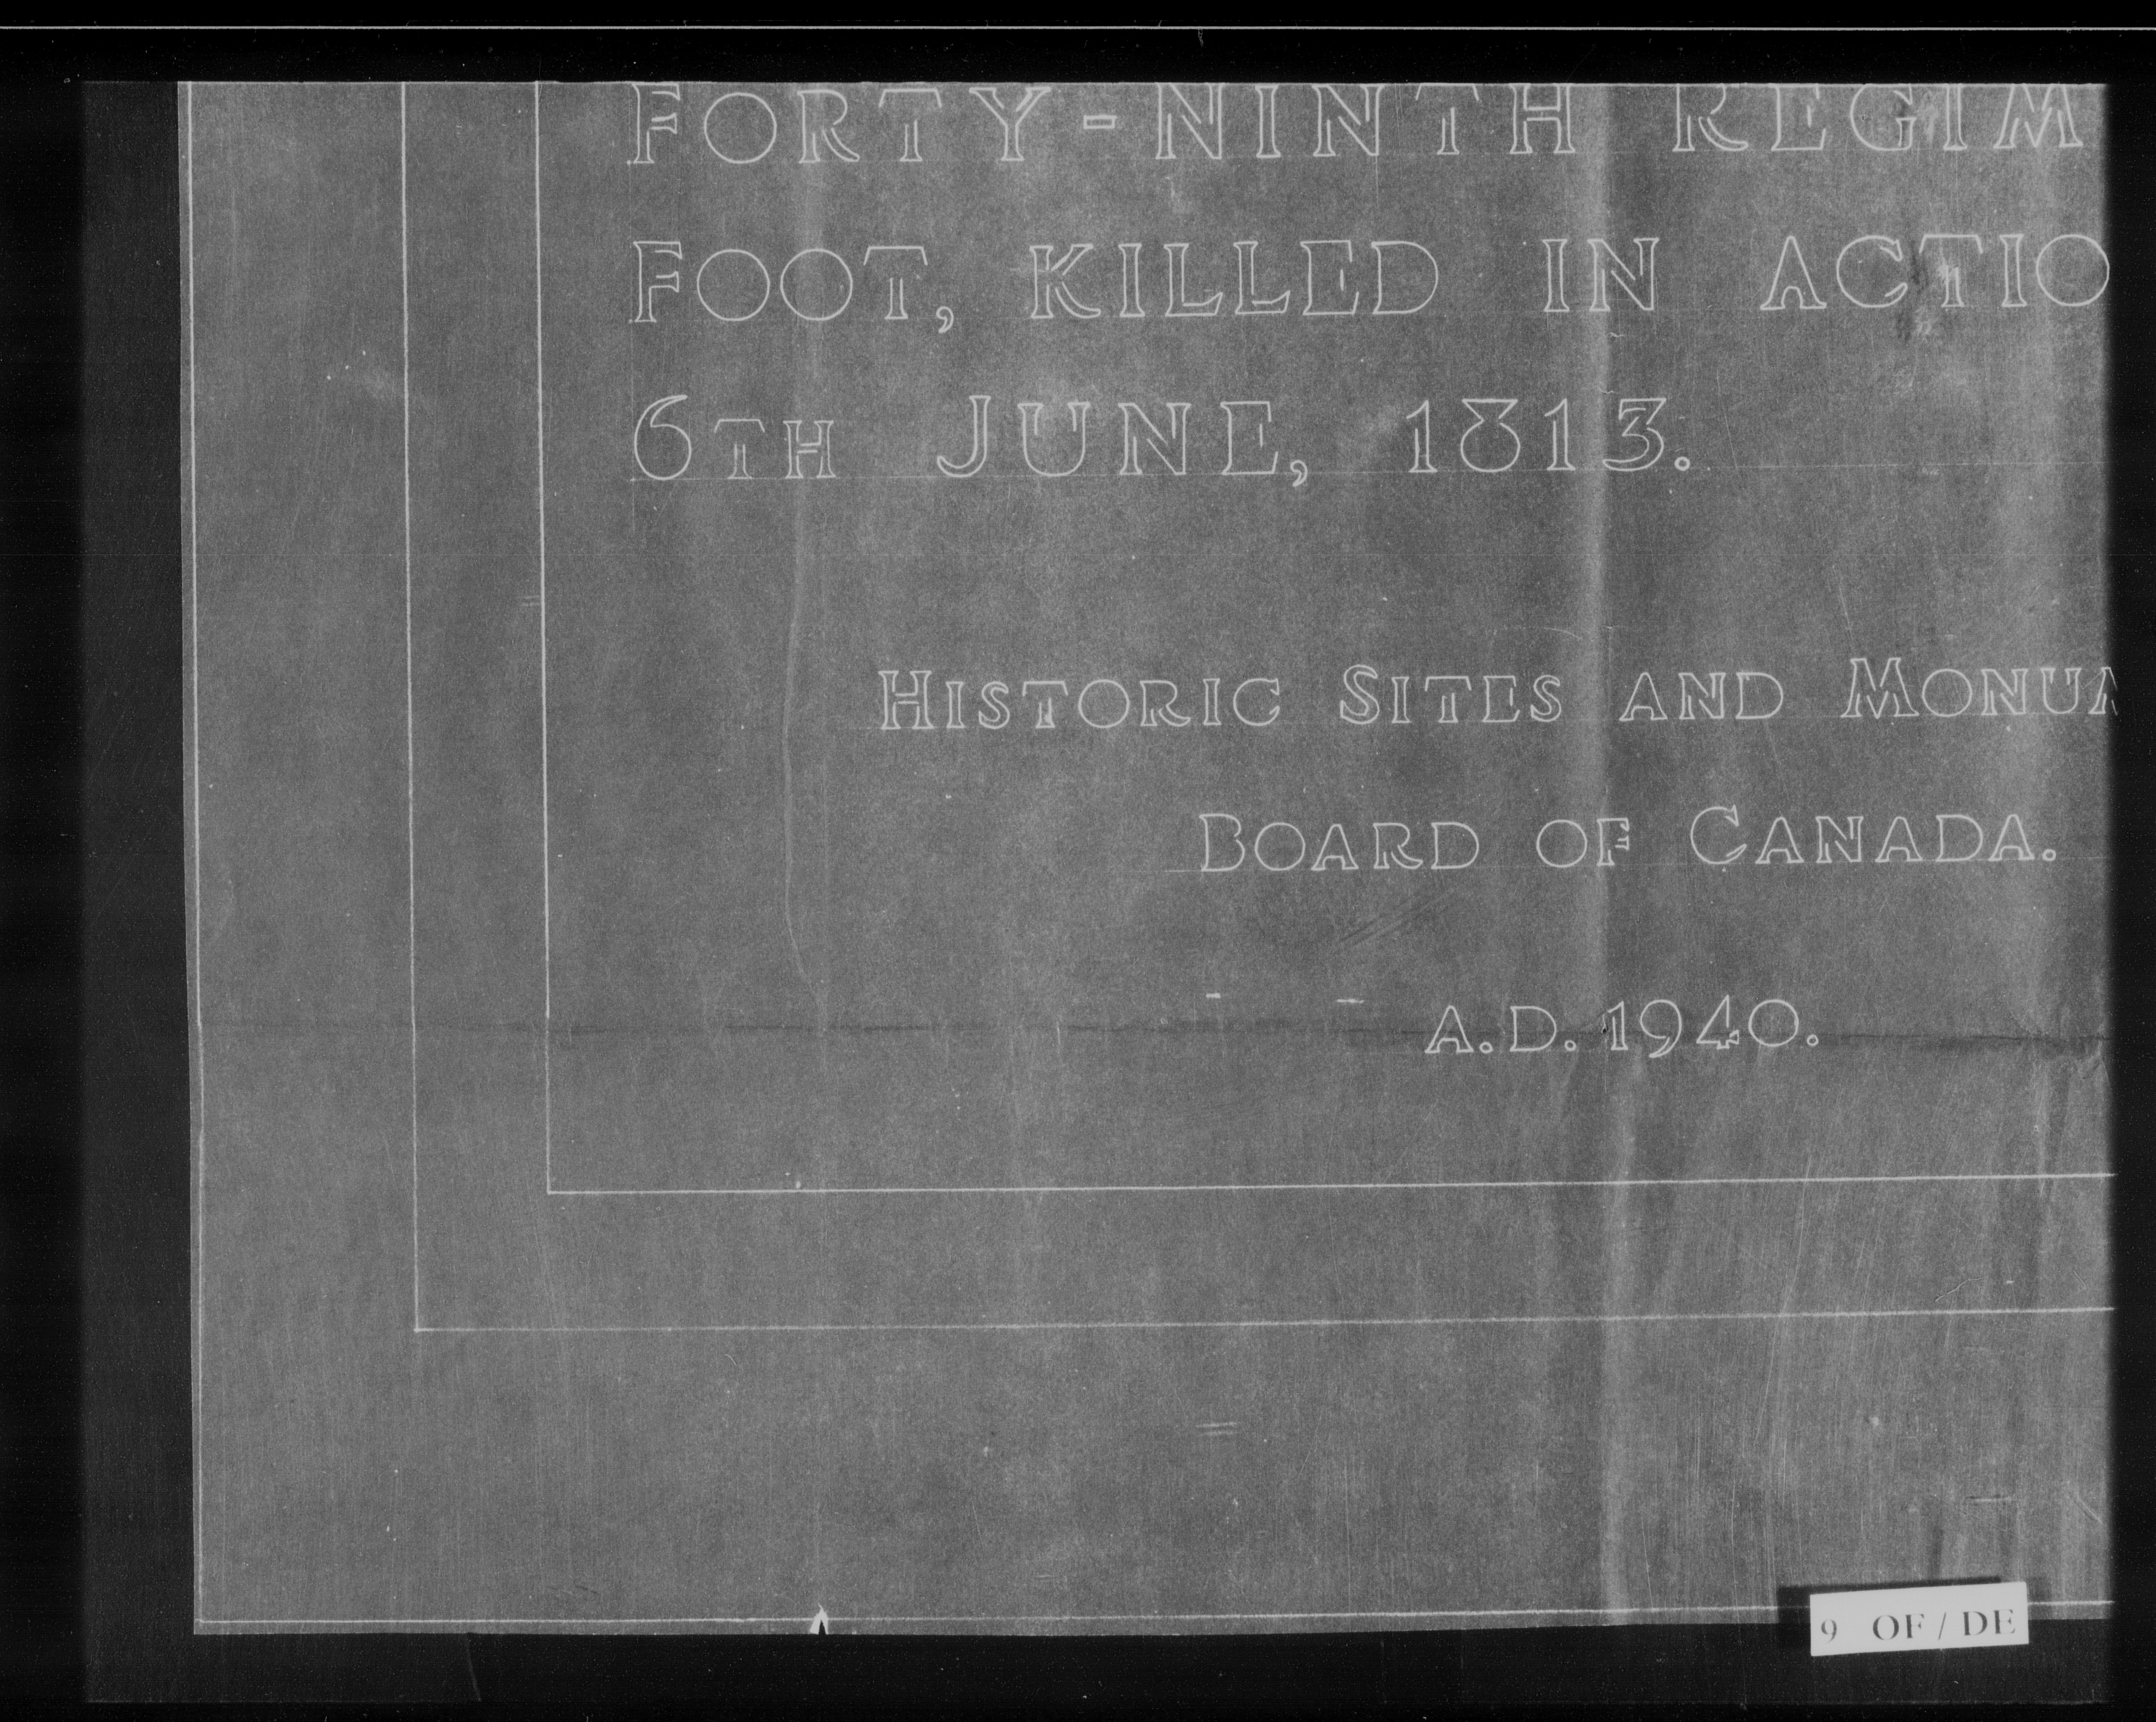 FORTY-NINTH REGIM
FOOT, KILLED IN ACTIO
6TH JUNE, 1813.
HISTORIC SITES AND MONUM
BOARD OF CANADA.
A.D. 1940.
9 OF / DE